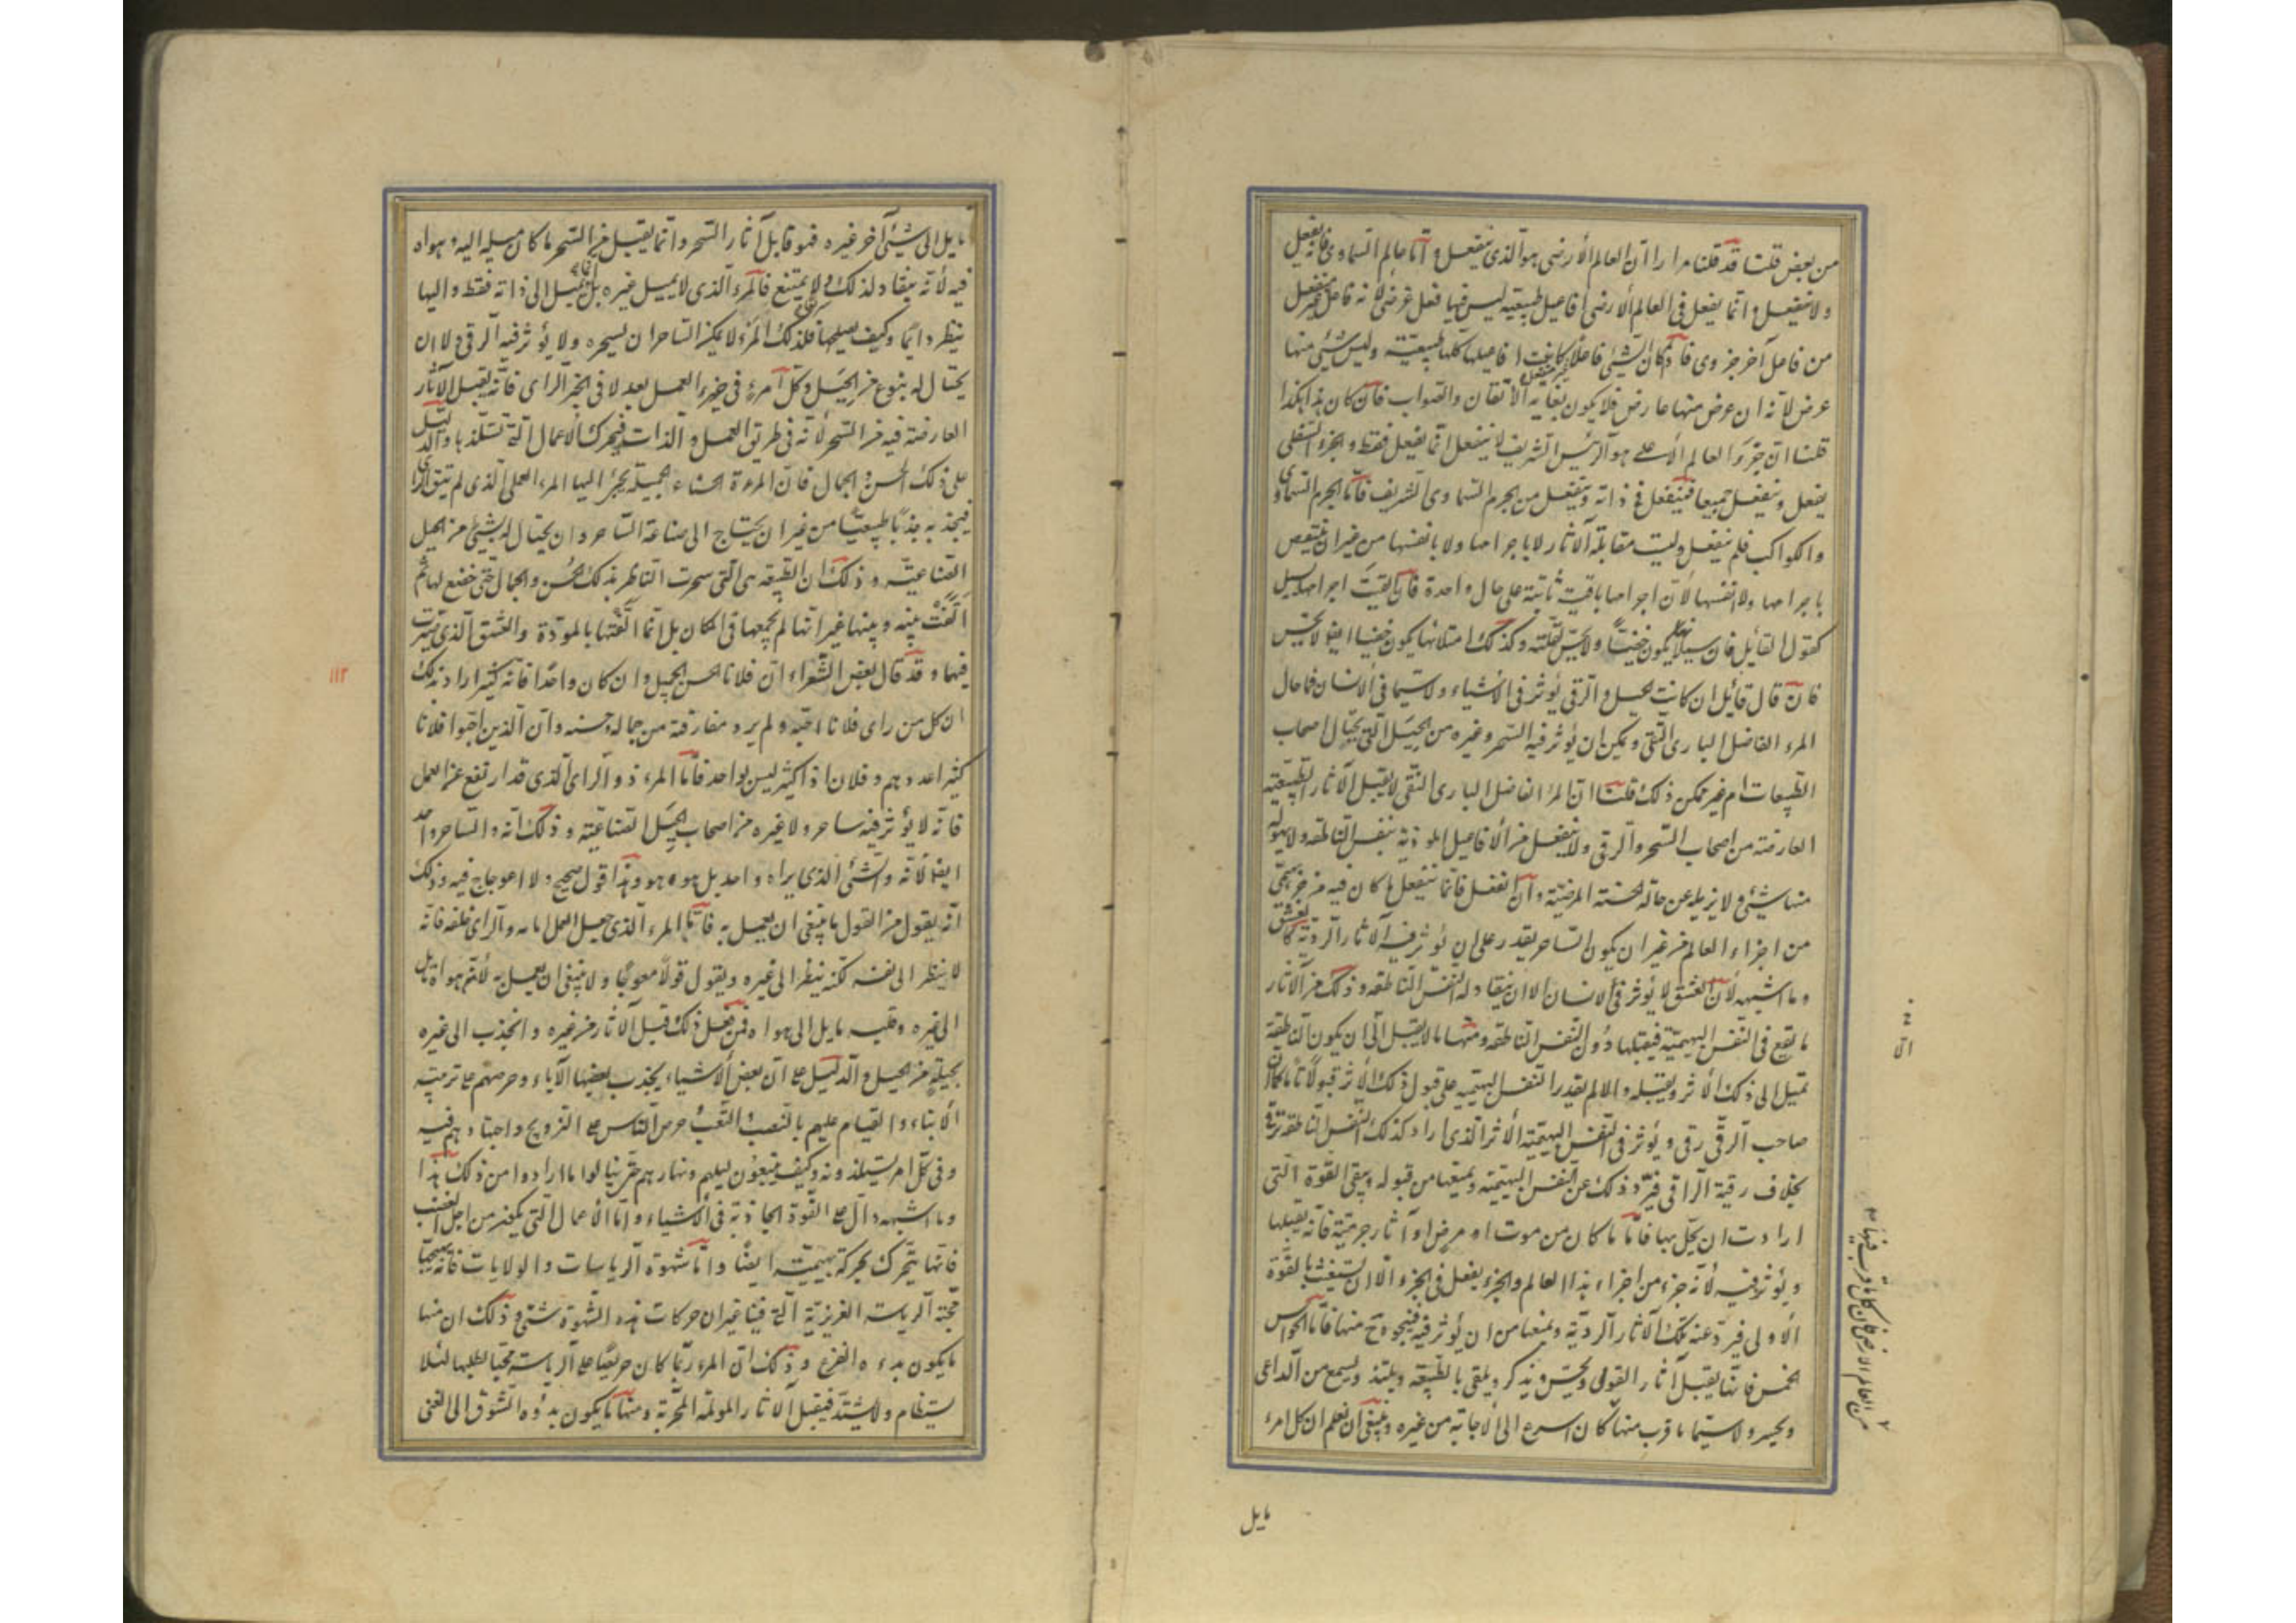 من بعض قلنا قد قلنا مرارا ان العالم الأرضى هو الذى ينفعل و اما عالم السماوى فانه يفعل
ولا ينفعل و انما يفعل فى العالم الأرضى افاعيل طبيعية ليس فيها فعل عرضى لأنه فاعل غير منفعل
من فاعل آخر جزوى فاذا كان الشىء فاعلا غير منفعل كانت افاعيلها كلها طبيعية وليس شىء منها
عرض لأنه ان عرض منها عارض فلا يكون بغاية الاتقان والصواب فان كان هذا هكذا
قلنا ان جزء العالم الأعلى هو الرئيس الشريف لا ينفعل انما يفعل فقط و الجزء السفلى
يفعل و ينفعل جميعا فينفعل فى ذاته و ينفعل من الجرم السماوى الشريف فاما الجرم السماوى
والكواكب فلم ينفعل وليت مقابلة الآثار لا باجرامها ولا بانفسها من غير ان ينتقص
باجرامها ولا انفسها لأن اجرامها باقية ثابتة على حال واحدة فان القيت اجرامها يسيل
كقول القائل فان سيلانها يكون خفيا ولا يحس لقلته و كذلك امتلائها يكون خفيا ايضا لا يحس
فان قال قائل ان كانت الحيل و الرقى يؤثر فى الأشياء ولا سيما فى الانسان فما حال
المرء الفاضل البارى التقى ويمكن ان يؤثر فيه السحر وغيره من الحيل التى يحتال اصحاب
الطبيعات ام غير ممكن ذلك قلنا ان المرء الفاضل البارى النقى لا يقبل الآثار الطبيعية
العارضة من اصحاب السحر والرقى ولا ينفعل من الأفاعيل الموذية بنفس الناطقة ولا يهوله
منها شىء ولا يزيله عن حالته الحسنة المرضية و ان انفعل فانما ينفعل ما كان فيه من جزء بهيمى
من اجزاء العالم من غير ان يكون الساحر يقدر على ان يؤثر فيه الآثار الردية كالعشق
وما اشبهه لأن العشق لا يؤثر فى الانسان الا ان ينقاد له النفس الناطقة و ذلك من الآثار
ما يقع فى النفس البهيمية فيقبلها دون النفس الناطقة ومنها ما لا يقبل الى ان يكون الناطقة
تميل الى ذلك الأثر ويقبله و الا لم يقدر النفس البهيمية على قبول ذلك الأثر قبولا تاما كما ان
صاحب الرقى رقى و يؤثر فى النفس البهيمية الأثر الذى اراد كذلك النفس الناطقة ترقى
بخلاف رقية الراقى فيرد ذلك عن النفس البهيمية و يمنعها من قبوله و يبقى القوة التى
ارادت ان يحل بها فاما ما كان من موت او مرض او آثار جرمية فانه يقبلها
و يؤثر فيه لأنه جزء من اجزاء هذا العالم والجزء يفعل فى الجزء الا ان يستغيث بالقوة
الأولى فيرد عنه تلك الآثار الردية ويمنعها من ان يؤثر فيه فينجو منها فاما الحواس
الخمس فانها يقبل آثار القوى و يحس و يذكر و يلقى بالطبيعة ويلتذ ويسمع من الداعى
ويجيبه ولا سيما ما قرب منها كان اسرع الى الاجابة من غيره و ينبغى ان نعلم ان كل امرء
من العالم الأرضى فان كل ما قرب منها
مايل
مايل الى شىء آخر غيره فهو قابل آثار السحر وانما يقبل من السحر ما كان ميله اليه و هواه
فيه لأنه ينقاد لذلك ولا يمتنع فالمرء الذى لا يميل غيره بل انما يميل الى ذاته فقط و اليها
ينظر دائما وكيف يصلحها فلذلك المرء لا يمكن الساحر ان يسحره ولا يؤثر فيه الرقى ولا ان
يحتال له بنوع من الحيل وكل امرء فى جزء العمل بعد لا فى جزء الراى فانه يقبل الآثار
العارضة فيه من السحر لأنه فى طريق العمل و الذات فيتحرك الأعمال التى تستلذها و الدليل
على ذلك الحسن و الجمال فان المرءة الحسناء الجميلة يجر اليها المرء العملى الذى لم يتق الراى
فيجذبه جذبا طبيعيا من غير ان يحتاج الى صناعة الساحر و ان يحتال له بشىء من الحيل
الصناعية و ذلك ان الطبيعة هى التى سحرت الناظر بذلك الحسن والجمال حتى خضع لها ثم
الفت بينه وبينها غير انها لم يجمعها فى المكان بل انما الفتها بالمودة والعشق الذى صيرت
فيهما و قد قال بعض الشعراء ان فلانا الحسن الجميل وان كان واحدا فانه كثير اراد بذلك
١١٣
ان كل من راى فلانا احبه ولم يرد مفارقته من جماله وحسنه وان الذين احبوا فلانا
كثير اعدادهم و فلان اذا كثير ليس بواحد فاما المرء ذو الراى الذى قد ارتفع عن العمل
فانه لا يؤثر فيه ساحر ولا غيره من اصحاب الحيل الصناعية و ذلك انه و الساحر واحد
ايضا لأنه والشىء الذى يراه واحد بل هو هو و هذا قول صحيح ولا اعوجاج فيه و ذلك
انه يقول من القول ما ينبغى ان يعمل به فاما المرء الذى جعل العمل امامه والراى خلفه فانه
لا ينظر الى نفسه لكنه ينظر الى غيره ويقول قولا معوجا ولا ينبغى ان يعمل به لأنه هواه مايل
الى غيره و قلبه مايل الى هواه فمن فعل ذلك قبل الآثار من غيره و انجذب الى غيره
بحيلة من الحيل والدليل على ان بعض الأشياء يجذب بعضها الآباء وحرصهم على تربية
الأبناء والقيام عليهم بالنصب و التعب و حرص الناس على التزويج واجتهادهم فيه
وفى كل امر يستلذونه وكيف يتبعون ليلهم ونهارهم حتى ينالوا ما ارادوا من ذلك هذا
وما اشبهه دال على القوة الجاذبة فى الأشياء واما الأعمال التى يكون من اجل الغضب
فانها يتحرك بحركة بهيمية ايضا و اما شهوة الرياسات والولايات فانه يهيجها
محبة الرياسة الغريزية التى فينا غير ان حركات هذه الشهوة شتى و ذلك ان منها
ما يكون بدءه الفزع و ذلك ان المرء ربما كان حريصا على الرياسة محبا لطلبها لئلا
يستظام ولا يشتد فيقبل الآثار المولمة المحزنة ومنها ما يكون بدؤه الشوق الى الغنى